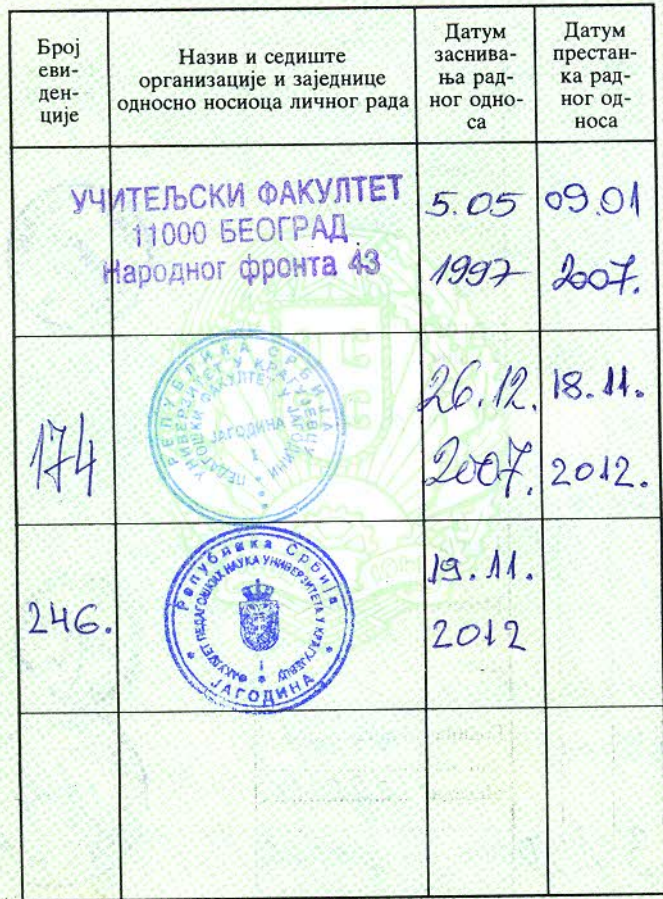 Број
еви-
ден-
ције
Назив и седиште
организације и заједнице
односно носиоца личног рада
Датум
заснива-
ња рад-
ног одно-
са
Датум
престан-
ка рад-
ног од-
носа
УЧИТЕЉСКИ ФАКУЛТЕТ
11000 БЕОГРАД
Народног фронта 43
5.05
1997
09.01
2007.
174
РЕПУБЛИКА СРБИЈА
УНИВЕРЗИТЕТ У КРАГУЈЕВЦУ
ПЕДАГОШКИ ФАКУЛТЕТ У ЈАГОДИНИ
ЈАГОДИНА
I
26.12.
2007.
18.11.
2012.
246.
Република Србија
ФАКУЛТЕТ ПЕДАГОШКИХ НАУКА УНИВЕРЗИТЕТА У КРАГУЈЕВЦУ
I
ЈАГОДИНА
19.11.
2012